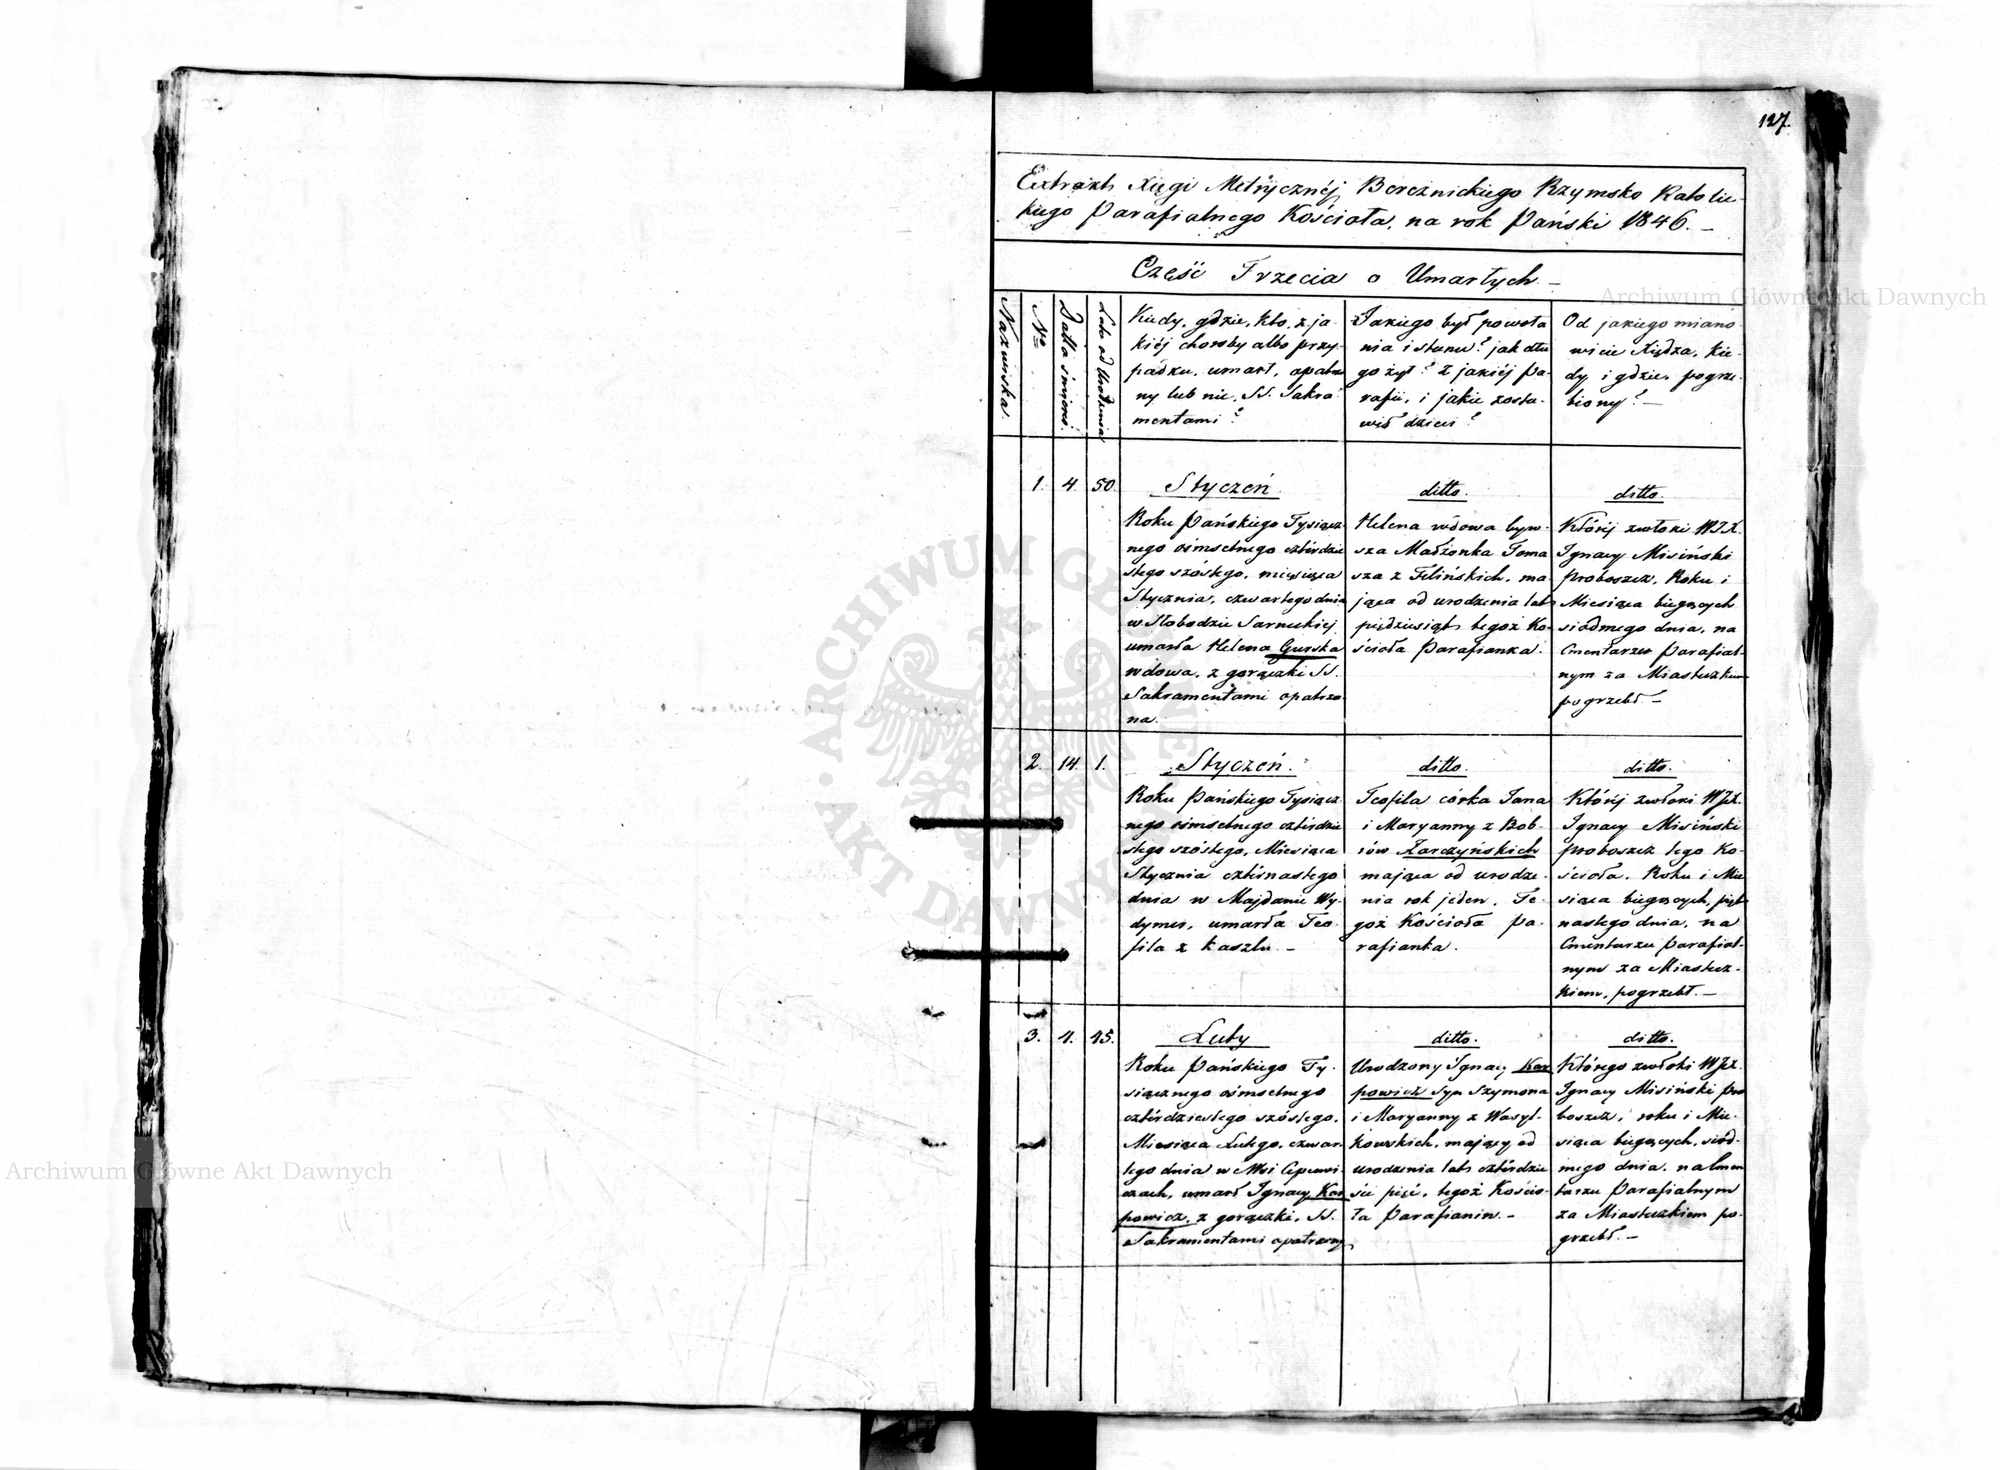 127.
Extrakt Xięgi Metrycznéj Bereznickiego Rzymsko Katolic-
kiego Parafialnego Kościoła, na rok Pański 1846. —
Część Trzecia o Umarłych. —
Nazwiska.
Nro
Datta śmierci.
Lata od Urodzenia
Kiedy, gdzie, kto, z ja-
kiéj choroby albo przy-
padku, umarł, opatrzo
ny lub nie, SS. Sakra-
mentami?
Jakiego był powoła
nia i stanu? jak dłu
go żył? z jakiéj Pa-
rafii, i jakie zosta-
wił dzieci?
Od jakiego miano
wicie Xiędza, kie-
dy i gdzie, pogrze-
biony? —
1. 4. 50.
Styczeń.
Roku Pańskiego Tysiącz-
nego ośmsetnego cztérdzie
stego szóstego, miesiąca
Stycznia, czwartego dnia
w Słobodzie Sarneckiej
umarła Helena Gurska
wdowa, z gorączki SS.
Sakramentami opatrzo-
na.
ditto.
Helena wdowa byw-
sza Małżonka Toma
sza z Felińskich, ma-
jąca od urodzenia lat
pięćdziesiąt, tegoż Ko-
ścioła Parafianka.
ditto.
Któréj zwłoki WJX.
Ignacy Misiński
Proboszcz, Roku i
Miesiąca bieżących
siódmego dnia, na
Cmentarzu Parafial-
nym za Miasteczkiem
pogrzebł. —
2. 14. 1.
Styczeń.
Roku Pańskiego Tysiącz-
nego ośmsetnego cztérdzie
stego szóstego, Miesiąca
Stycznia cztérnastego
dnia w Majdanie Wy-
dymer, umarła Teo-
fila z kaszlu. —
ditto.
Teofila córka Jana
i Maryanny z Bob-
rów Karczyńskich
mająca od urodze-
nia rok jeden. Te-
goż Kościoła Pa-
rafianka.
ditto.
Któréj zwłoki WJX.
Ignacy Misiński
proboszcz tego Ko-
ścioła, Roku i Mie
siąca bieżących, pięt-
nastego dnia, na
Cmentarzu Parafial-
nym za Miastecz-
kiem, pogrzebł. —
3. 4. 45.
Luty
Roku Pańskiego Ty-
siącznego ośmsetnego
cztérdziestego szóstego,
Miesiąca Lutego, czwar-
tego dnia w Wsi Cepcewi-
czach, umarł Ignacy Kar
powicz, z gorączki, SS.
Sakramentami opatrzony
ditto.
Urodzony Ignacy Kar
powicz syn Szymona
i Maryanny z Wasyl-
kowskich, mający od
urodzenia lat cztérdzie
ści pięć, tegoż Kościo-
ła Parafianin. —
ditto.
Którego zwłoki WJX.
Ignacy Misiński pro
boszcz, roku i Mie-
siąca bieżących, siód-
mego dnia, na Cmen
tarzu Parafialnym
za Miasteczkiem po-
grzebł. —
Archiwum Główne Akt Dawnych
Archiwum Główne Akt Dawnych
ARCHIWUM GŁÓWNE AKT DAWNYCH